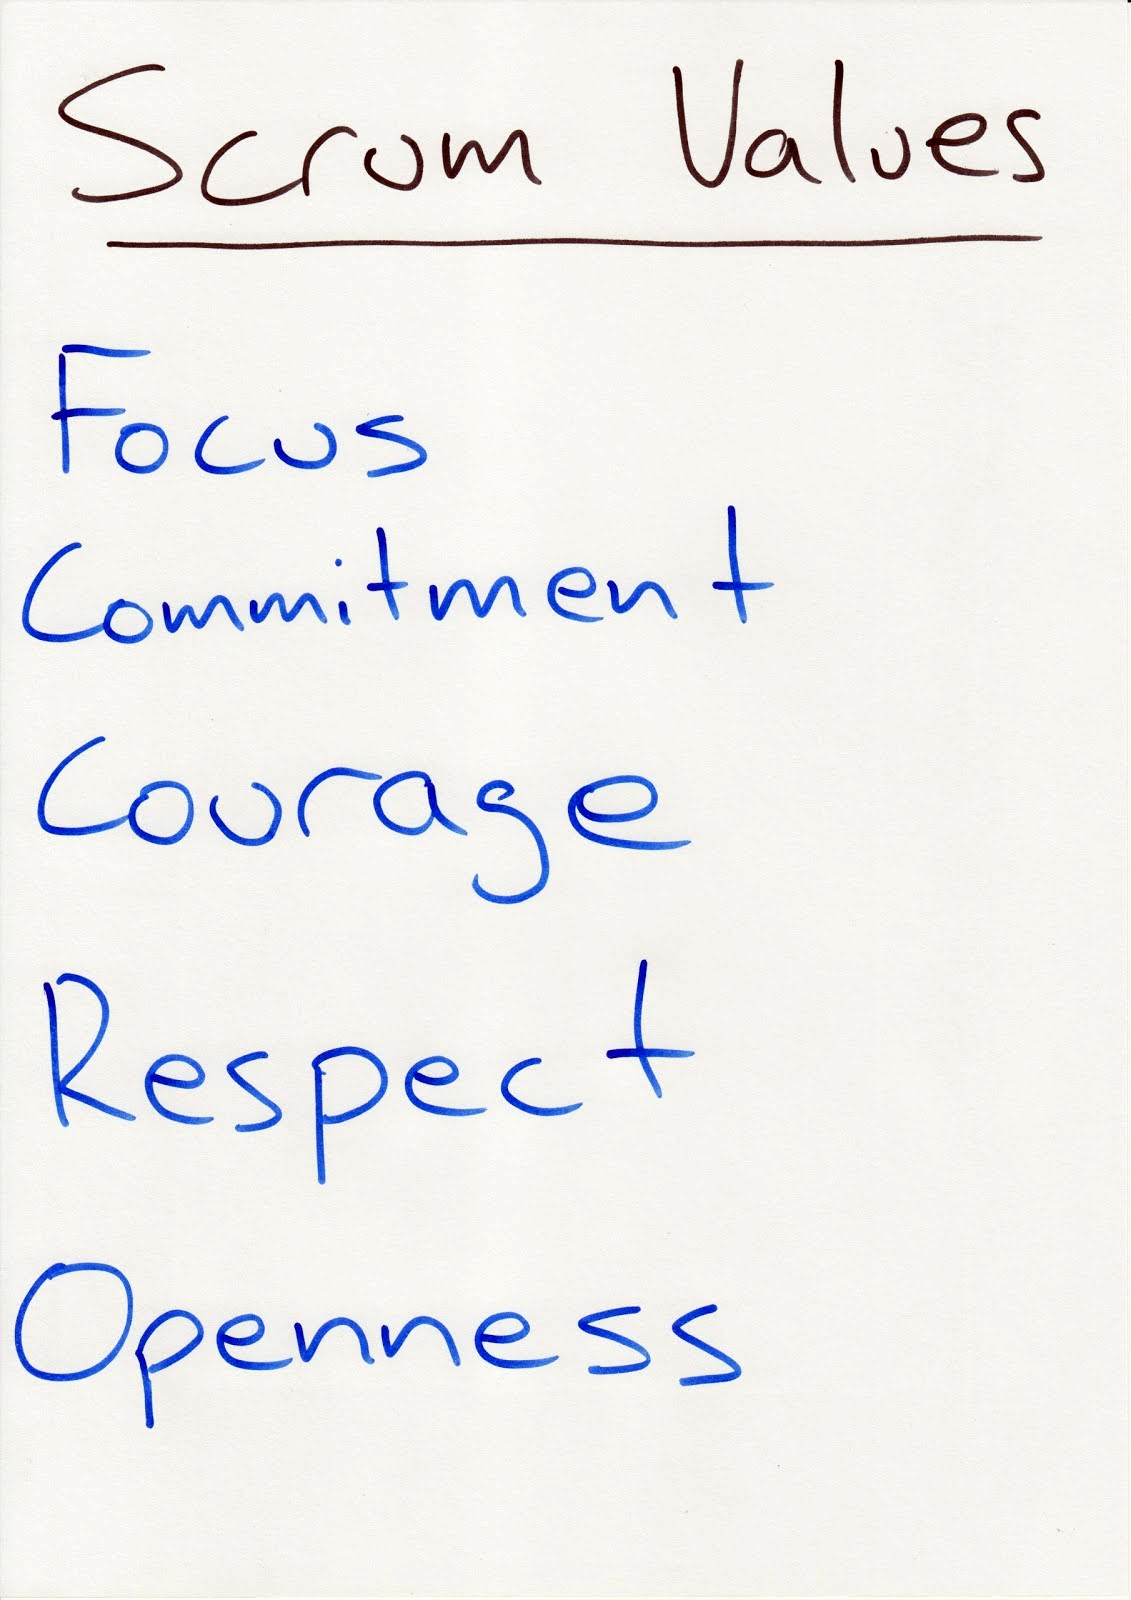 Scrum Values
Focus
Commitment
Courage
Respect
Openness